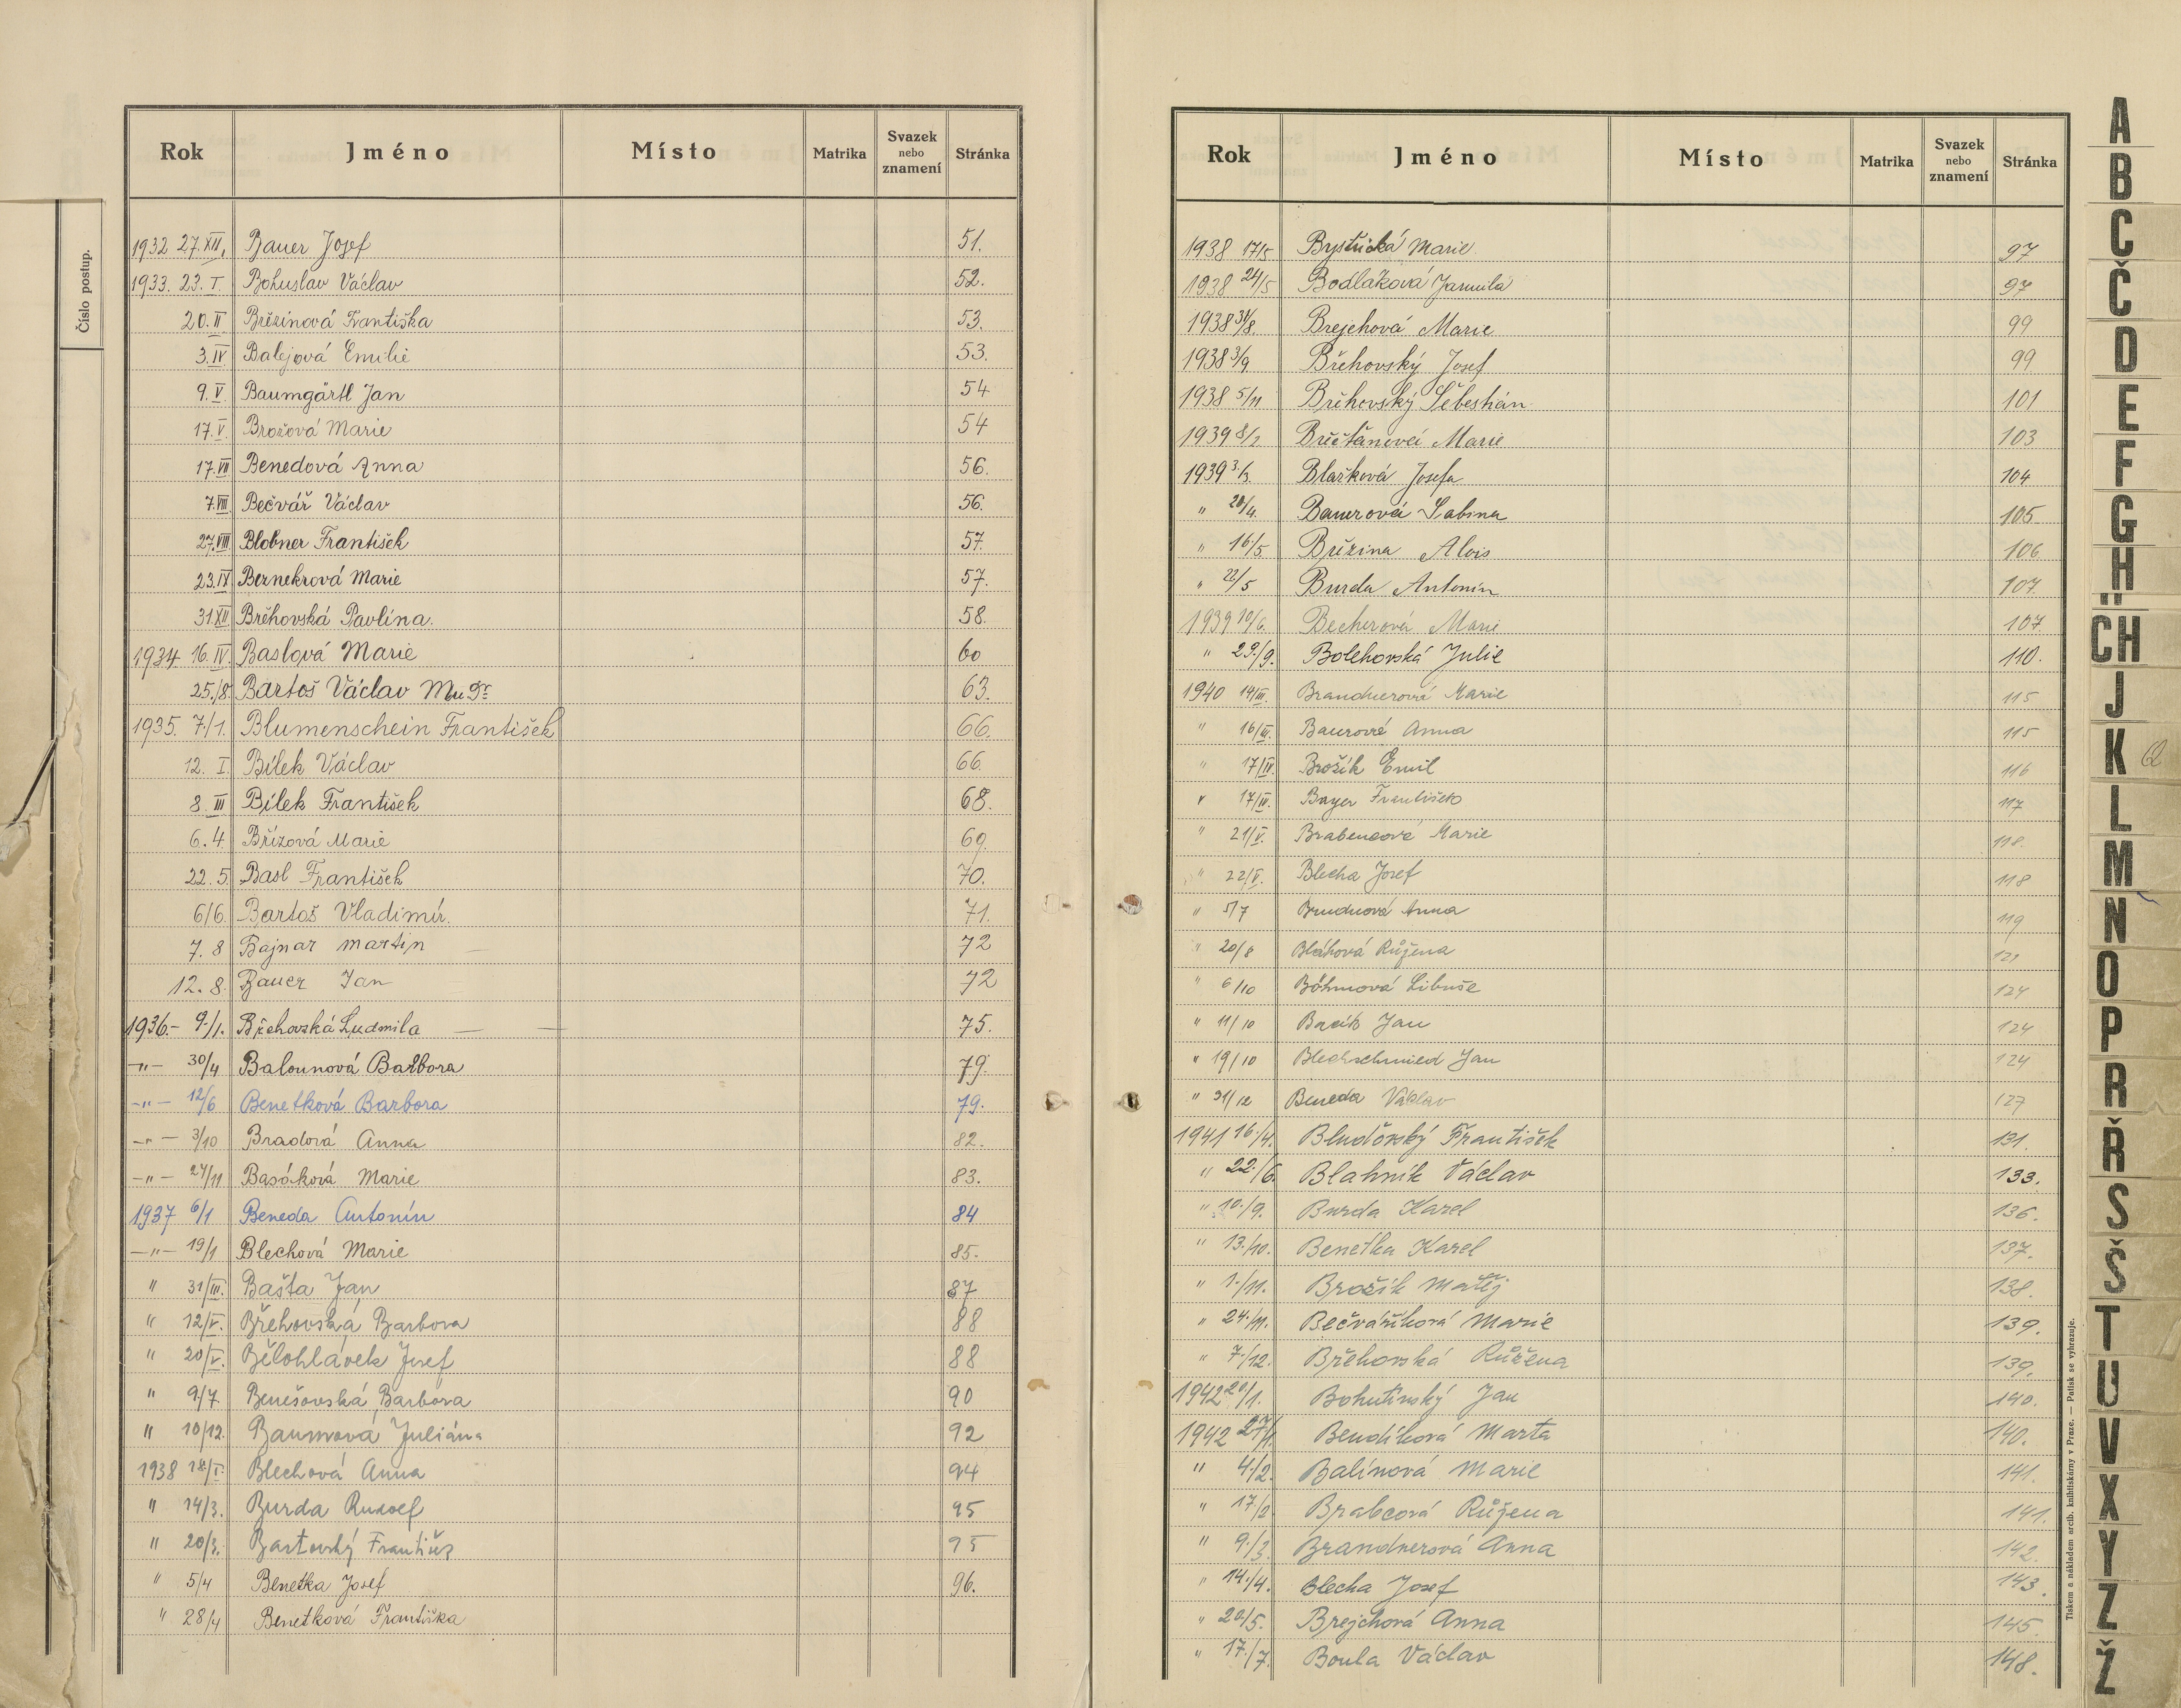 Číslo postup.
Rok Jméno Místo Matrika Svazek nebo znamení Stránka
1932 27.XII. Bauer Josef 51.
1933. 23. I. Bohuslav Václav 52.
20.II Březinová Františka 53.
3.IV Balejová Emilie 53.
9.V Baumgärtl Jan 54
17.V. Brožová Marie 54
17.VII Benedová Anna 56.
7.VIII Bečvář Václav 56.
27.VIII Blobner František 57.
23.IX Beznekrová Marie 57.
31.XII Břehovská Pavlína. 58.
1934 16.IV. Baslová Marie 60
25./8. Bartoš Václav MuDr 63.
1935. 7./1. Blumenschein František 66.
12. I. Bílek Václav 66.
8. III Bílek František 68.
6. 4. Břízová Marie 69.
22. 5. Basl František 70.
6/6. Bartoš Vladimír. 71.
7. 8 Bajnar Martin 72
12. 8. Bauer Jan 72
1936.- 9./1. Břehovská Ludmila 75.
-"- 30/4 Balounová Barbora 79.
-"- 12/6 Benetková Barbora 79.
-"- 3/10 Bradová Anna 82.
-"- 27/11 Basáková Marie 83.
1937 6/1 Beneda Antonín 84
-"- 19/1 Blechová Marie 85.
" 31/III. Bašta Jan 87
" 12/V. Břehovská Barbora 88
" 20/V. Bělohlávek Josef 88
" 9./7. Benešovská Barbora 90
" 10/12. Baumová Juliána 92
1938 18/I. Blechová Anna 94
" 14/3. Burda Rudolf 95
" 20/3. Bartovský František 95
" 5/4 Benetka Josef 96.
" 28/4 Benetková Františka
Rok Jméno Místo Matrika Svazek nebo znamení Stránka
1938 17/5 Bystřická Marie 97
1938 24/5 Bodláková Jarmila 97
1938 31/8. Brejchová Marie 99
1938 3/9 Břehovský Josef 99
1938 5/11 Břehovský Šebestián 101
1939 8/2 Marie 103
1939 3./3. Blažková Josefa 104
" 20/4. Bauerová Sabina 105
" 16/5 Březina Alois 106
" 22/5 Burda Antonín 107.
1939 10/6. Becherová Marie 107.
" 29./9. Bolehovská Julie 110.
1940 14/III. Brandnerová Marie 115
" 16/III. Baurová Anna 115
" 17/IV. Brožík Emil 116
" 17/IV. Bayer František 117
" 21/V. Brabencová Marie 118.
" 22/V. Blecha Josef 118
" 5/7 Anna 119
" 20/8 Bláhová Růžena 121
" 6/10 Böhmová Libuše 124
" 11/10 Bacík Jan 124
" 19/10 Blechschmied Jan 124
" 31/12 Beneda Václav 127
1941 16./4. Bludovský František 131.
" 22./6. Blahník Václav 133.
" 10./9. Burda Karel 136.
" 13./10. Benetka Karel 137.
" 1./11. Brožík Matěj 138.
" 24./11. Bečvaříková Marie 139.
" 7./12. Břehovská Růžena 139.
1942 20/1. Bohutínský Jan 140.
1942 27/1. Bendíková Marta 140.
" 4./2. Balínová Marie 141.
" 17/2. Brabcová Růžena 141.
" 9./3. Brandnerová Anna 142.
" 14./4. Blecha Josef 143.
" 20/5. Brejchová Anna 145.
" 17./7. Boula Václav 148.
Tiskem a nákladem arcib. knihtiskárny v Praze. — Patisk se vyhrazuje.
A
B
C
Č
D
E
F
G
H
CH
J
K
L
M
N
O
P
R
Ř
S
Š
T
U
V
X
Y
Z
Ž